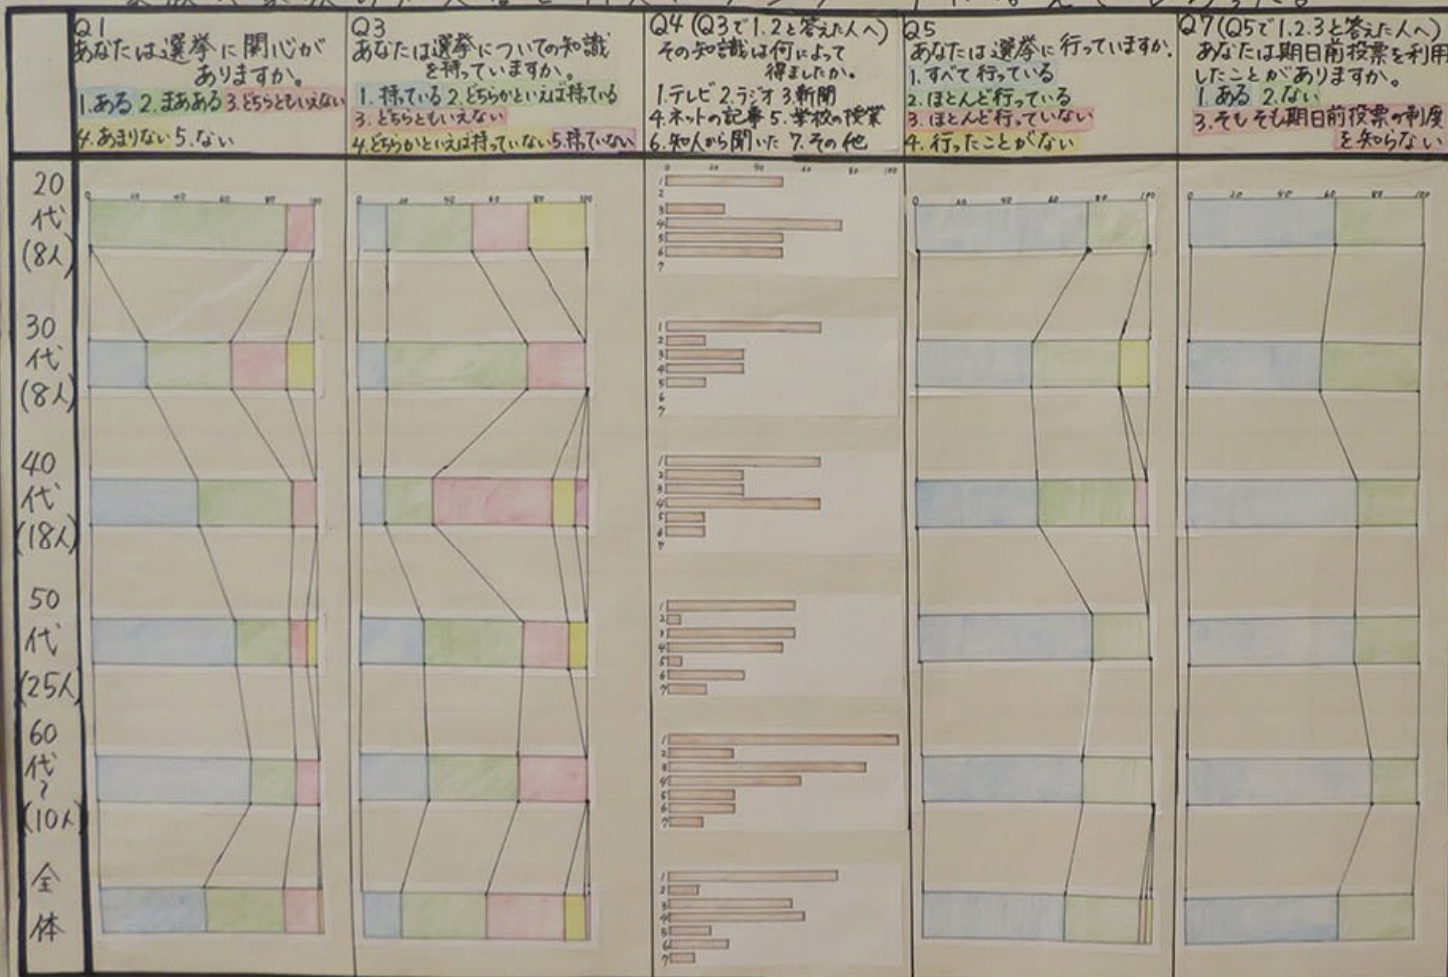 Q1
あなたは選挙に関心が
ありますか。
1.ある 2.まあある 3.どちらともいえない
4.あまりない 5.ない
Q3
あなたは選挙についての知識
を持っていますか。
1.持っている 2.どちらかといえば持っている
3.どちらともいえない
4.どちらかといえば持っていない 5.持っていない
Q4(Q3で1.2と答えた人へ)
その知識は何によって
得ましたか。
1.テレビ 2.ラジオ 3.新聞
4.ネットの記事 5.学校の授業
6.知人から聞いた 7.その他
Q5
あなたは選挙に行っていますか。
1.すべて行っている
2.ほとんど行っている
3.ほとんど行っていない
4.行ったことがない
Q7(Q5で1.2.3と答えた人へ)
あなたは期日前投票を利用
したことがありますか。
1.ある 2.ない
3.そもそも期日前投票の制度
を知らない
20
代
(8人)
30
代
(8人)
40
代
(18人)
50
代
(25人)
60
代
~
(10人)
全
体